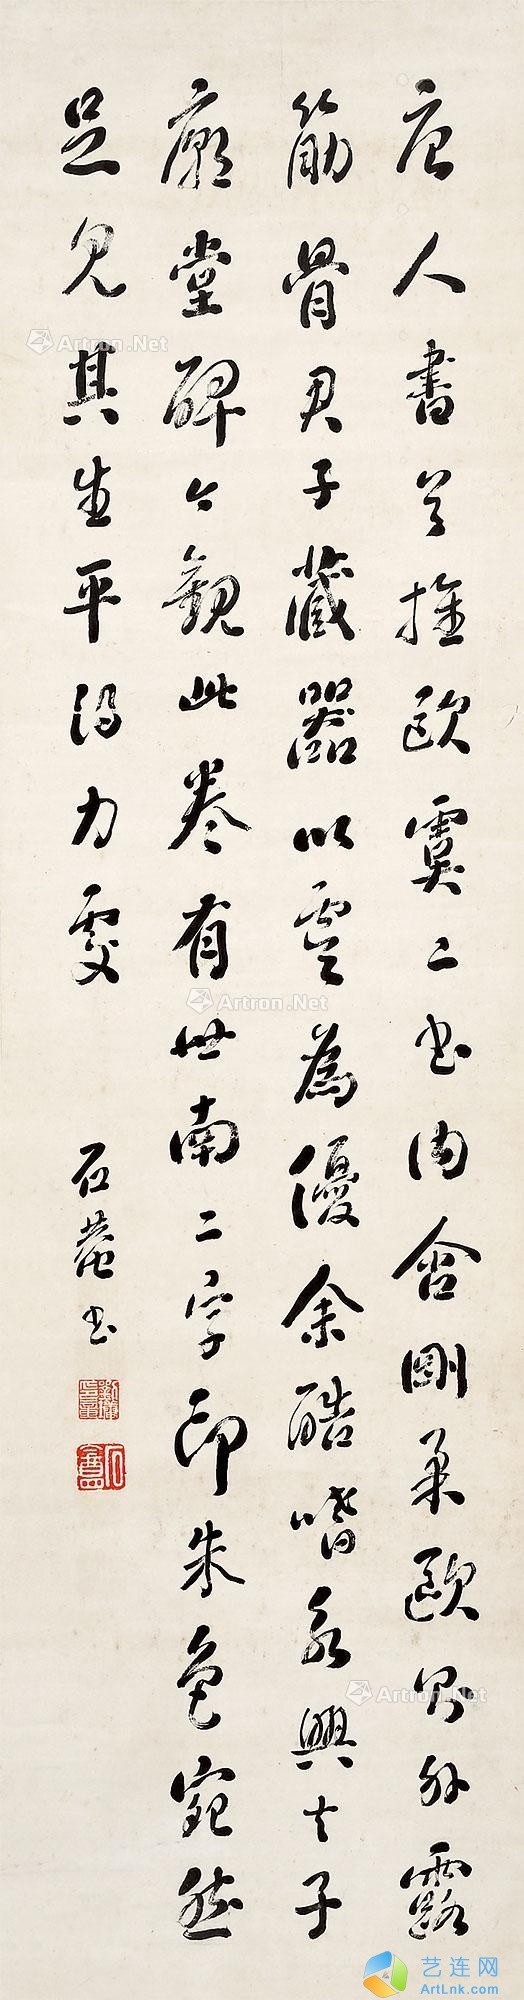 唐人書首推歐虞二公書內含剛柔歐則外露
筋骨君子藏器以虞為優余酷嗜永興夫子
廟堂碑今觀此卷有世南二字印朱色宛然
足見其生平得力處
石菴書
劉墉印章
石庵
Artron.Net
Artron.Net
Artron.Net
Artron.Net
艺连网
ArtLnk.com